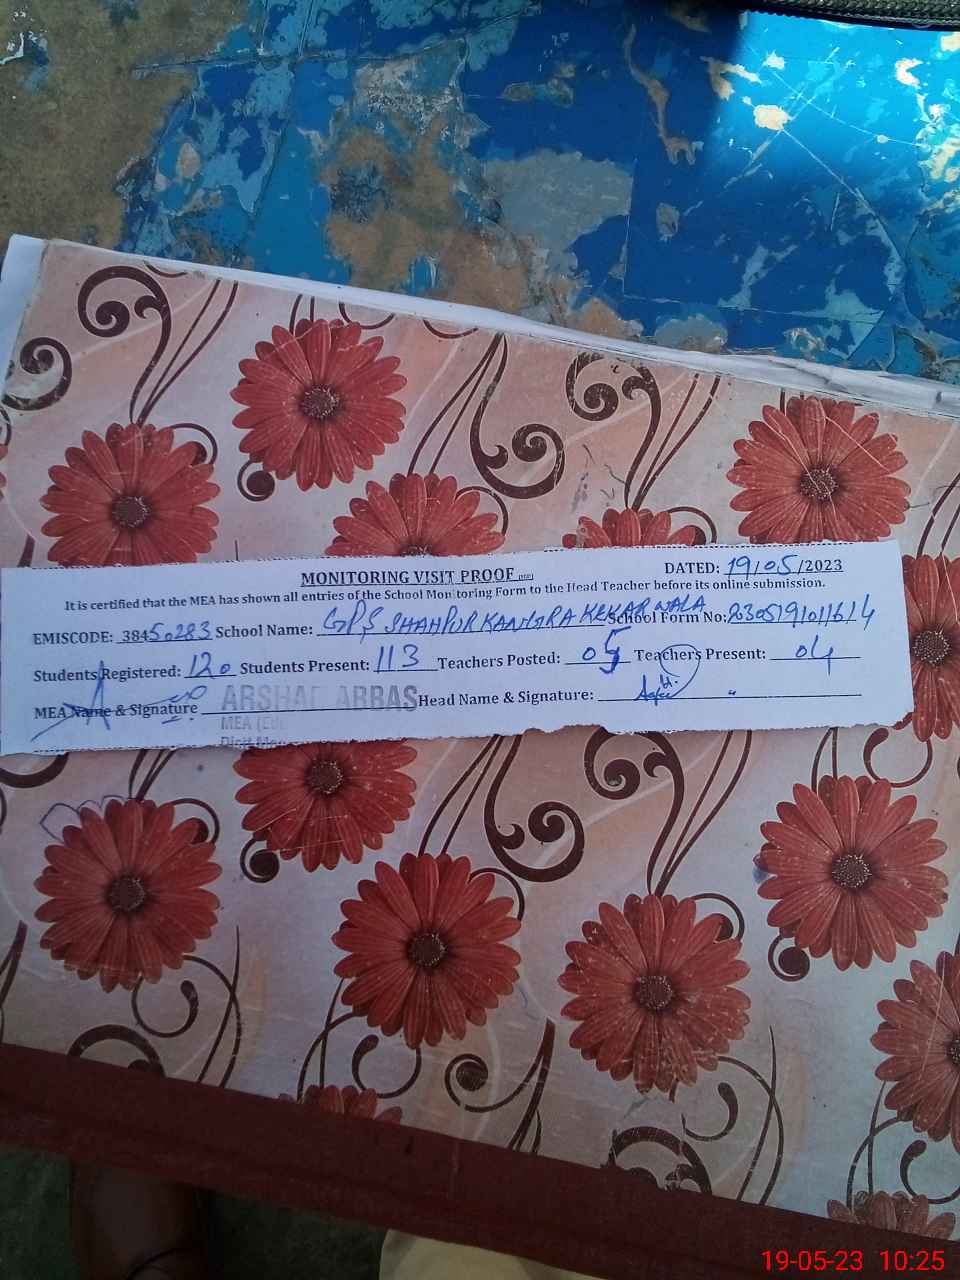 MONITORING VISIT PROOF
DATED: 19/05/2023
It is certified that the MEA has shown all entries of the School Monitoring Form to the Head Teacher before its online submission.
EMISCODE: 38450283 School Name: GPS SHAHPUR KANGRA KEKAR WALA School Form No: 2305191011614
Students Registered: 120 Students Present: 113 Teachers Posted: 05 Teachers Present: 04
MEA Name & Signature ARSHAD ABBAS Head Name & Signature:
MEA
19-05-23 10:25